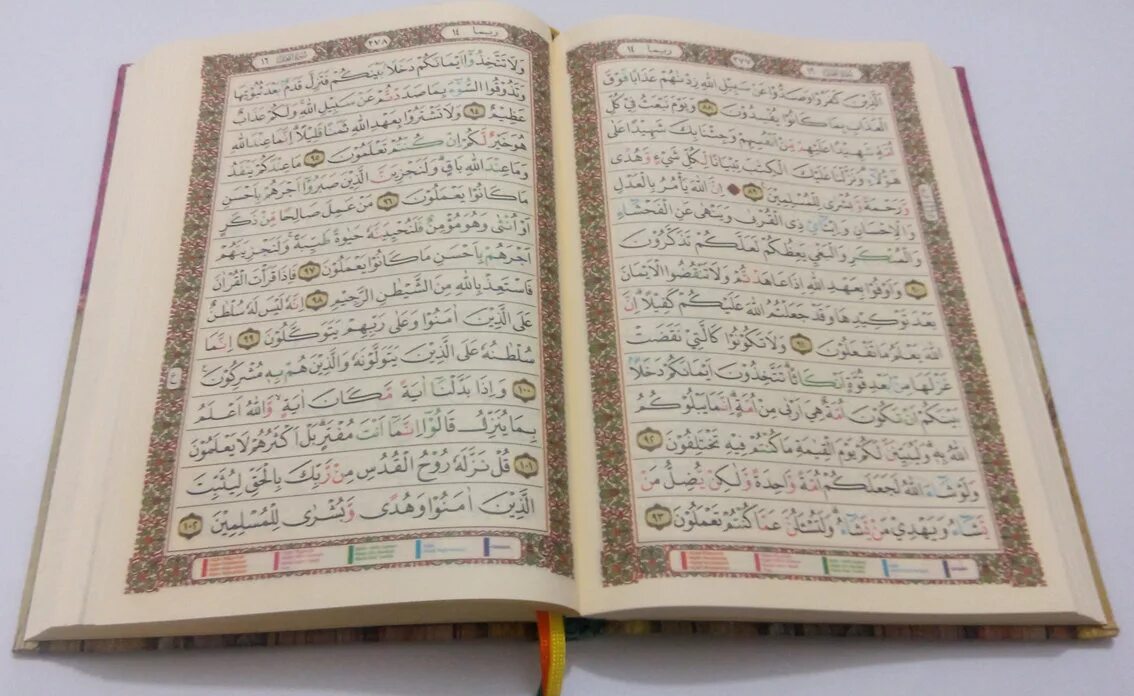 ربما ١٤ ٢٧٧
اَلَّذِيْنَ كَفَرُوْا وَصَدُّوْا عَنْ سَبِيْلِ اللّٰهِ زِدْنٰهُمْ عَذَابًا فَوْقَ
الْعَذَابِ بِمَا كَانُوْا يُفْسِدُوْنَ ٨٨ وَيَوْمَ نَبْعَثُ فِيْ كُلِّ
اُمَّةٍ شَهِيْدًا عَلَيْهِمْ مِّنْ اَنْفُسِهِمْ وَجِئْنَا بِكَ شَهِيْدًا عَلٰى
هٰٓؤُلَاۤءِ وَنَزَّلْنَا عَلَيْكَ الْكِتٰبَ تِبْيَانًا لِّكُلِّ شَيْءٍ وَّهُدًى
وَّرَحْمَةً وَّبُشْرٰى لِلْمُسْلِمِيْنَ ٨٩ اِنَّ اللّٰهَ يَأْمُرُ بِالْعَدْلِ
وَالْاِحْسَانِ وَاِيْتَاۤئِ ذِى الْقُرْبٰى وَيَنْهٰى عَنِ الْفَحْشَاۤءِ
وَالْمُنْكَرِ وَالْبَغْيِ يَعِظُكُمْ لَعَلَّكُمْ تَذَكَّرُوْنَ
٩٠ وَاَوْفُوْا بِعَهْدِ اللّٰهِ اِذَا عَاهَدْتُّمْ وَلَا تَنْقُضُوا الْاَيْمَانَ
بَعْدَ تَوْكِيْدِهَا وَقَدْ جَعَلْتُمُ اللّٰهَ عَلَيْكُمْ كَفِيْلًا اِنَّ
اللّٰهَ يَعْلَمُ مَا تَفْعَلُوْنَ ٩١ وَلَا تَكُوْنُوْا كَالَّتِيْ نَقَضَتْ
غَزْلَهَا مِنْ بَعْدِ قُوَّةٍ اَنْكَاثًا تَتَّخِذُوْنَ اَيْمَانَكُمْ دَخَلًا
بَيْنَكُمْ اَنْ تَكُوْنَ اُمَّةٌ هِيَ اَرْبٰى مِنْ اُمَّةٍ اِنَّمَا يَبْلُوْكُمُ
اللّٰهُ بِهٖ وَلَيُبَيِّنَنَّ لَكُمْ يَوْمَ الْقِيٰمَةِ مَا كُنْتُمْ فِيْهِ تَخْتَلِفُوْنَ ٩٢
وَلَوْ شَاۤءَ اللّٰهُ لَجَعَلَكُمْ اُمَّةً وَّاحِدَةً وَّلٰكِنْ يُّضِلُّ مَنْ
يَّشَاۤءُ وَيَهْدِيْ مَنْ يَّشَاۤءُ وَلَتُسْـَٔلُنَّ عَمَّا كُنْتُمْ تَعْمَلُوْنَ ٩٣
ربما ١٤ ٢٧٨ سورة النحل ١٦
وَلَا تَتَّخِذُوْٓا اَيْمَانَكُمْ دَخَلًا بَيْنَكُمْ فَتَزِلَّ قَدَمٌ بَعْدَ ثُبُوْتِهَا
وَتَذُوْقُوا السُّوْۤءَ بِمَا صَدَدْتُّمْ عَنْ سَبِيْلِ اللّٰهِ وَلَكُمْ عَذَابٌ
عَظِيْمٌ ٩٤ وَلَا تَشْتَرُوْا بِعَهْدِ اللّٰهِ ثَمَنًا قَلِيْلًا اِنَّمَا عِنْدَ اللّٰهِ
هُوَ خَيْرٌ لَّكُمْ اِنْ كُنْتُمْ تَعْلَمُوْنَ ٩٥ مَا عِنْدَكُمْ يَنْفَدُ
وَمَا عِنْدَ اللّٰهِ بَاقٍ وَلَنَجْزِيَنَّ الَّذِيْنَ صَبَرُوْٓا اَجْرَهُمْ بِاَحْسَنِ
مَا كَانُوْا يَعْمَلُوْنَ ٩٦ مَنْ عَمِلَ صَالِحًا مِّنْ ذَكَرٍ
اَوْ اُنْثٰى وَهُوَ مُؤْمِنٌ فَلَنُحْيِيَنَّهٗ حَيٰوةً طَيِّبَةً وَلَنَجْزِيَنَّهُمْ
اَجْرَهُمْ بِاَحْسَنِ مَا كَانُوْا يَعْمَلُوْنَ ٩٧ فَاِذَا قَرَأْتَ الْقُرْاٰنَ
فَاسْتَعِذْ بِاللّٰهِ مِنَ الشَّيْطٰنِ الرَّجِيْمِ ٩٨ اِنَّهٗ لَيْسَ لَهٗ سُلْطٰنٌ
عَلَى الَّذِيْنَ اٰمَنُوْا وَعَلٰى رَبِّهِمْ يَتَوَكَّلُوْنَ ٩٩ اِنَّمَا
سُلْطٰنُهٗ عَلَى الَّذِيْنَ يَتَوَلَّوْنَهٗ وَالَّذِيْنَ هُمْ بِهٖ مُشْرِكُوْنَ
١٠٠ وَاِذَا بَدَّلْنَآ اٰيَةً مَّكَانَ اٰيَةٍ وَّاللّٰهُ اَعْلَمُ
بِمَا يُنَزِّلُ قَالُوْٓا اِنَّمَآ اَنْتَ مُفْتَرٍ بَلْ اَكْثَرُهُمْ لَا يَعْلَمُوْنَ
١٠١ قُلْ نَزَّلَهٗ رُوْحُ الْقُدُسِ مِنْ رَّبِّكَ بِالْحَقِّ لِيُثَبِّتَ
الَّذِيْنَ اٰمَنُوْا وَهُدًى وَّبُشْرٰى لِلْمُسْلِمِيْنَ ١٠٢